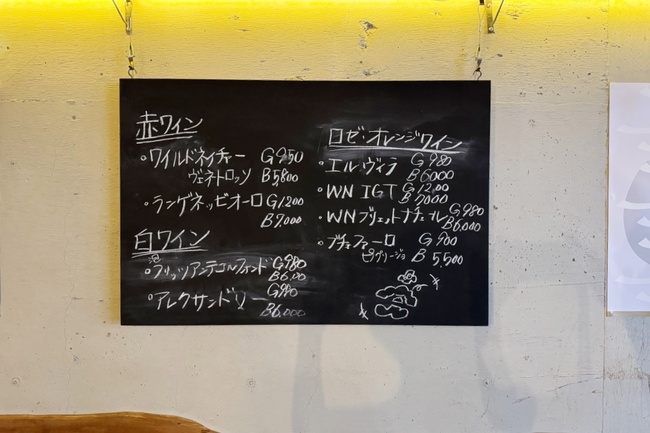 赤ワイン
・ワイルドネイチャー G950
ヴェネトロッソ B5,800
・ランゲネッビオーロ G1200
B7,000
白ワイン
泡
・フリッツアンテコルフォンド G980
B6,00
・アレクサンドリー G980
B6,000
ロゼ・オレンジワイン
・エル・ヴィラ G980
B6000
・WN IGT G1200
B7000
・WN ブリュットナチュール G980
B6,000
・ブチェフィーロ G900
ピグリージョ B5,500